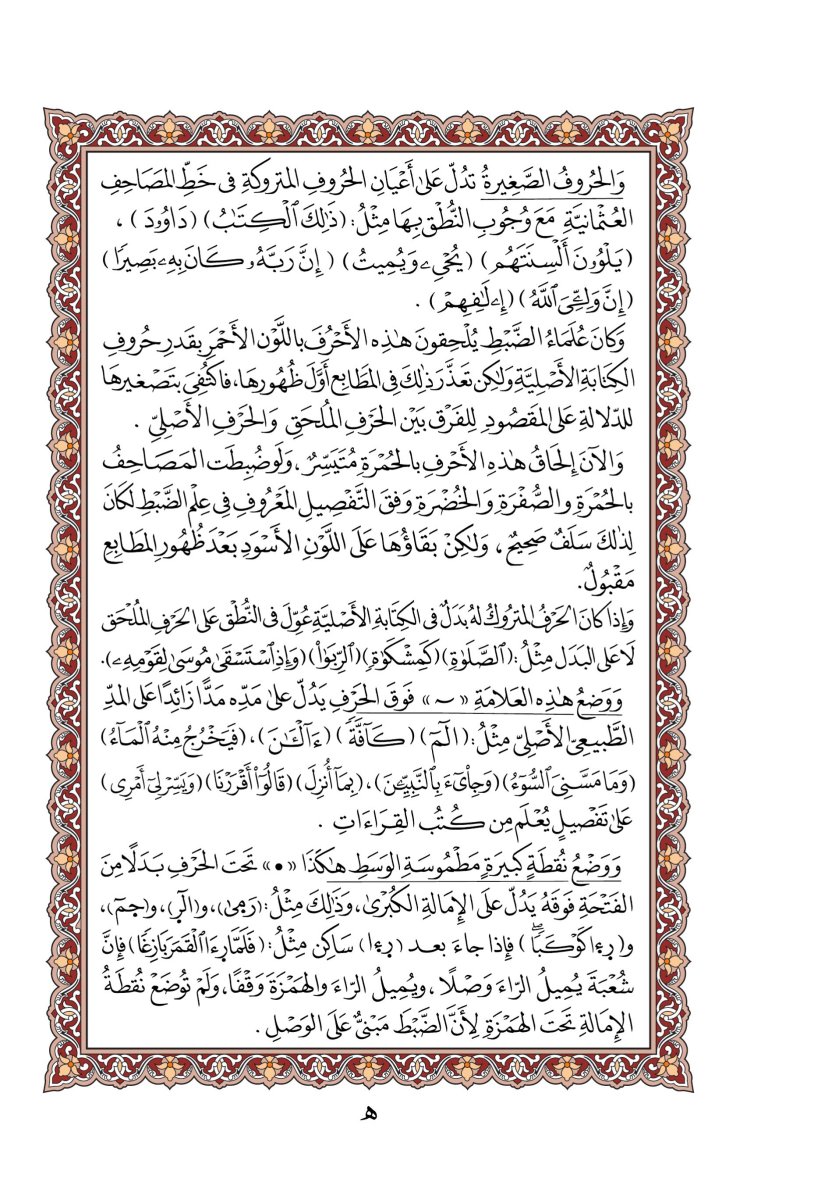 وَالحُرُوفُ الصَّغِيرَةُ تدُلّ عَلىٰ أَعْيَانِ الحُرُوفِ المَتروكَةِ فى خَطِّ المَصَاحِفِ
العُثْمَانيَّةِ مَعَ وُجُوبِ النُّطْقِ بِهَا مِثْلُ: (ذَٰلِكَ ٱلْكِتَٰبُ) (دَاوُۥدَ) ،
(يَلْوُۥنَ أَلْسِنَتَهُم) (يُحْىِۦ وَيُمِيتُ) (إِنَّ رَبَّهُۥ كَانَ بِهِۦ بَصِيرًا)
(إِنَّ وَلِـِّۧىَ ٱللَّهُ) (إِۦلَٰفِهِمْ) .
وَكَانَ عُلَمَاءُ الضَّبْطِ يُلْحِقونَ هَٰذِه الأَحْرُفَ باللَّوْن الأَحْمَرِ بِقَدرِ حُروفِ
الكِتابَةِ الأَصْلِيَّةِ وَلَٰكِن تَعَذَّرَ ذٰلِكَ فِى المَطَابِع أَوَّلَ ظُهُورِهَا، فَاكتُفِىَ بتَصْغيرهَا
للدّلالَةِ عَلى المَقصُودِ لِلفَرْق بَيْن الحَرْفِ المُلحَقِ وَالحَرْفِ الأَصْلِىّ .
وَالآنَ إلحَاقُ هَٰذِهِ الأَحْرفِ بالحُمْرَةِ مُتَيَسِّرٌ، وَلَوضُبِطَت المَصَاحِفُ
بالحُمْرَةِ والصُّفْرَةِ وَالخُضْرَةِ وَفقَ التَّفْصِيلِ المَعْرُوفِ فِى عِلْمِ الضَّبْطِ لَكَانَ
لِذٰلِكَ سَلَفٌ صَحِيحٌ ، وَلكِنْ بَقَاؤُهَا عَلَى اللَّوْنِ الأَسْوَدِ بَعْدَ ظُهُورِ المَطَابِعِ
مَقْبُولٌ.
وَإذا كانَ الحَرْفُ المتروكُ لهُ بَدَلٌ فى الكِتابَةِ الأَصْليَّةِ عُوِّلَ فى النُّطْقِ عَلى الحَرفِ المُلْحَق
لَا عَلى البَدَل مِثْلُ: (ٱلصَّلَوٰةِ) (كَمِشْكَوٰةٍ) (ٱلرِّبَوٰا۟) (وَإِذِ ٱسْتَسْقَىٰ مُوسَىٰ لِقَوْمِهِۦ).
وَوَضعُ هٰذِه العَلامَةِ «~» فَوقَ الحَرفِ يَدُلّ عَلىٰ مَدِّه مَدًّا زَائِدًا عَلى المَدِّ
الطَّبيعِىّ الأَصْلِىّ مِثْلُ: (الٓمٓ) (كَآفَّةً) (ءَآلْـَٰٔنَ) ، (فَيَخْرُجُ مِنْهُ ٱلْمَآءُ)
(وَمَا مَسَّنِىَ ٱلسُّوٓءُ) (وَجِا۟ىٓءَ بِٱلنَّبِيِّـۧنَ) ، (بِمَآ أُنزِلَ) (قَالُوٓا۟ أَقْرَرْنَا) (وَيَسِّرْ لِىٓ أَمْرِى)
عَلىٰ تَفْصِيلٍ يُعْلَم مِن كُتُبِ القِرَاءَاتِ .
وَوَضْعُ نُقطَةٍ كَبيرَةٍ مَطْمُوسَةِ الوَسَطِ هٰكَذَا «●» تَحتَ الحَرْفِ بَدَلًا مِنَ
الفَتْحَةِ فَوقَهُ يَدُلّ عَلَى الإِمَالَةِ الكُبْرَىٰ، وَذَٰلِكَ مِثْلُ: (رَمىٰ)، و(الٓر)، و(حمٓ)،
و(رءا كَوْكَبًا) فإذا جاءَ بعد (رءا) سَاكِن مِثْلُ: (فَلَمَّا رءَا ٱلْقَمَرَ بَازِغًا) فإنَّ
شُعْبَةَ يُمِيلُ الرّاءَ وَصْلًا ، ويُمِيلُ الرّاءَ والهَمْزَةَ وَقْفًا، وَلَمْ تُوضَعْ نُقطَةُ
الإمَالَةِ تَحتَ الهَمْزَةِ لِأَنَّ الضَّبْطَ مَبْنىٌّ عَلَى الوَصْلِ .
ھ